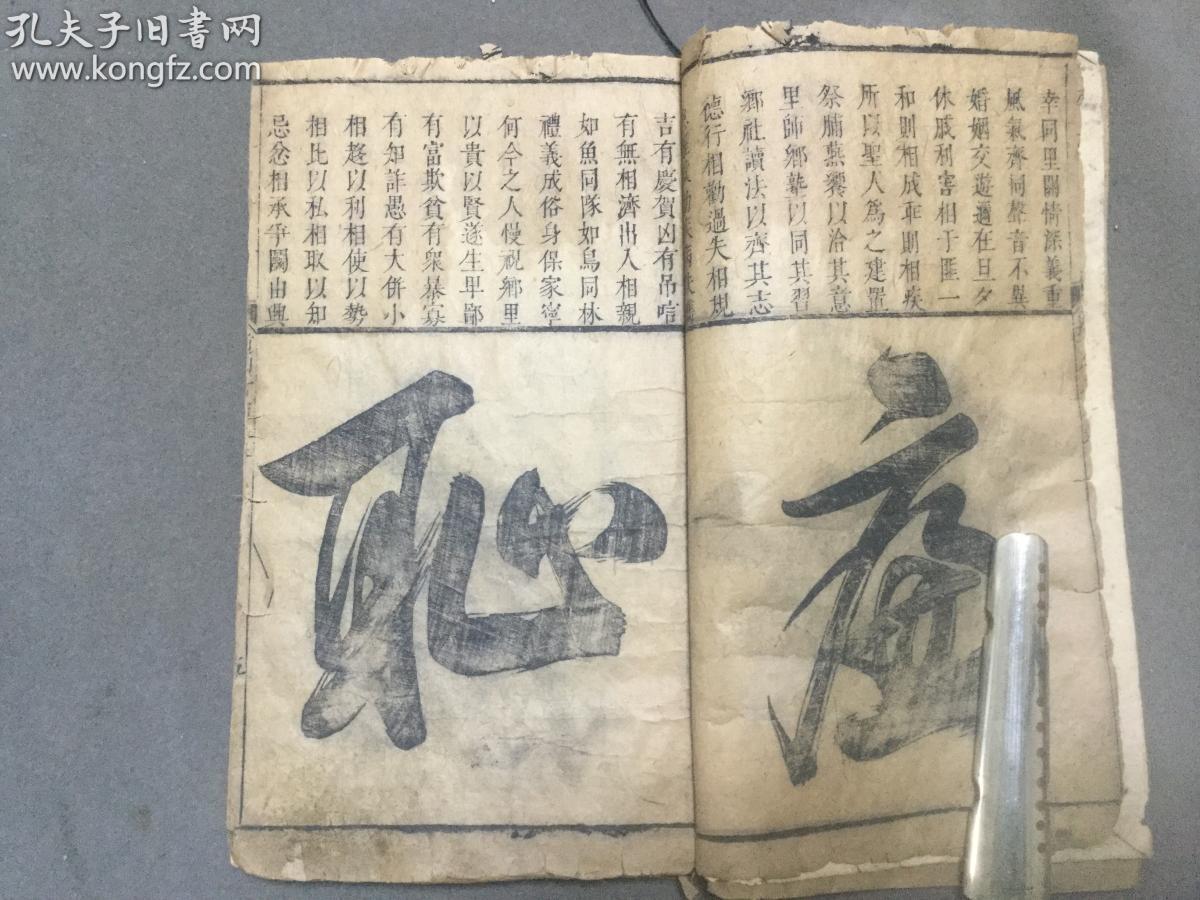 孔夫子旧书网
www.kongfz.com
幸同里閈情深義重
風氣齊同聲音不異
婚姻交遊邇在旦夕
休戚利害相于匪一
和則相成乖則相疾
所以聖人爲之建置
祭酺燕饗以洽其意
里師鄉塾以同其習
鄉社讀法以齊其志
德行相勸過失相規
吉有慶賀凶有吊唁
有無相濟出入相親
如魚同隊如鳥同林
禮義成俗身保家寧
何今之人慢視鄉里
以貴以賢遂生卑鄙
有富欺貧有衆暴寡
有知詐愚有大併小
相趍以利相使以勢
相比以私相取以知
忌忿相承爭鬬由興
廉
恥